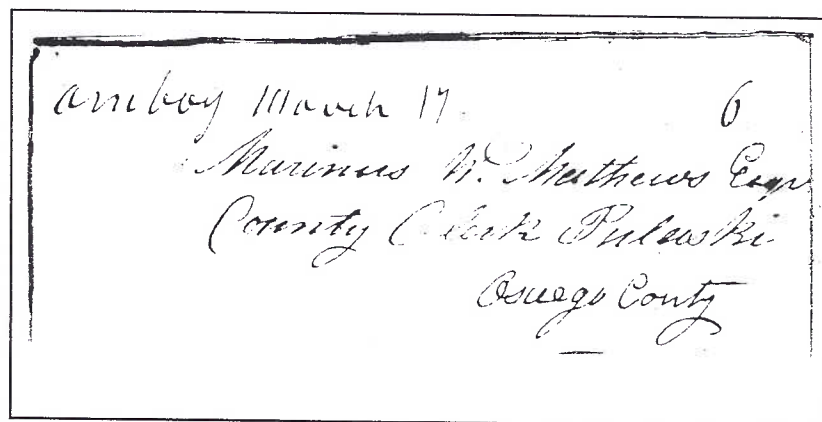 amboy March 17 6
Marinus W. Mathews Esqr
County Clerk Pulaski
Oswego Conty